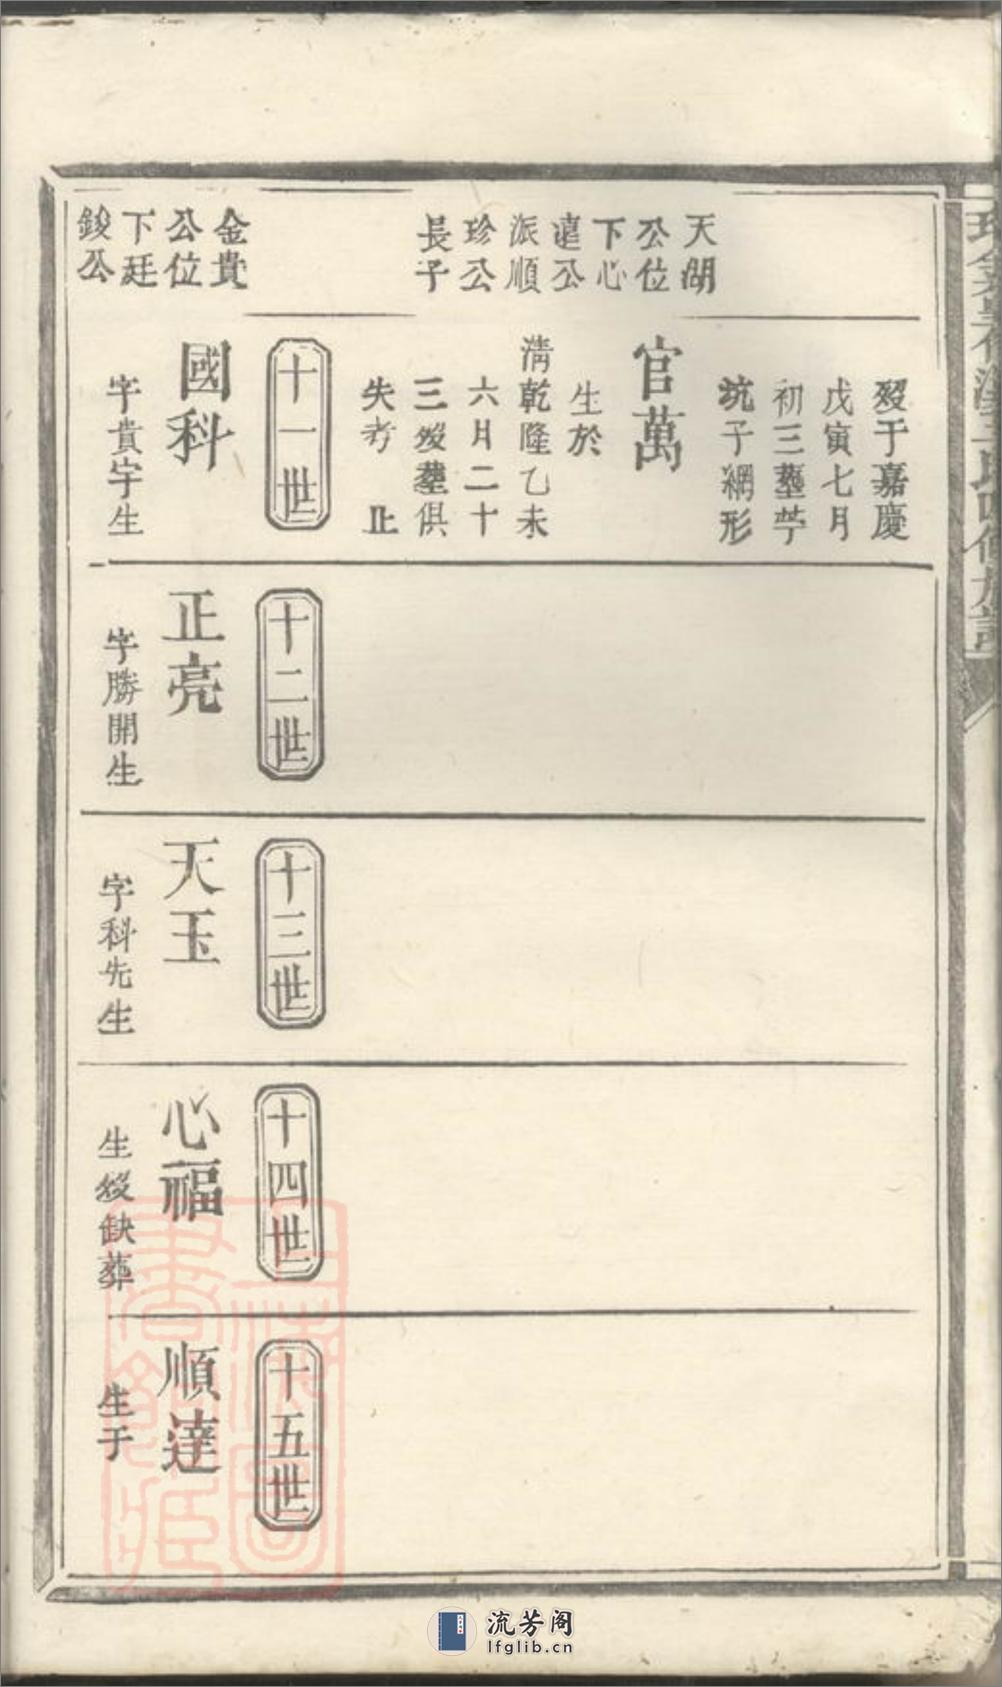 天湖
公位
下心
遠公
派順
珍公
長子
歿于嘉慶
戊寅七月
初三塟苧
坑子網形
官萬
生於
淸乾隆乙未
六月二十
三歿塟俱
失考 止
金貴
公位
下廷
鋑公
十一世
國科
字貴宇生
十二世
正亮
字勝開生
十三世
天玉
字科先生
十四世
心福
生歿缺葬
十五世
順達
生于
流芳阁
lfglib.cn